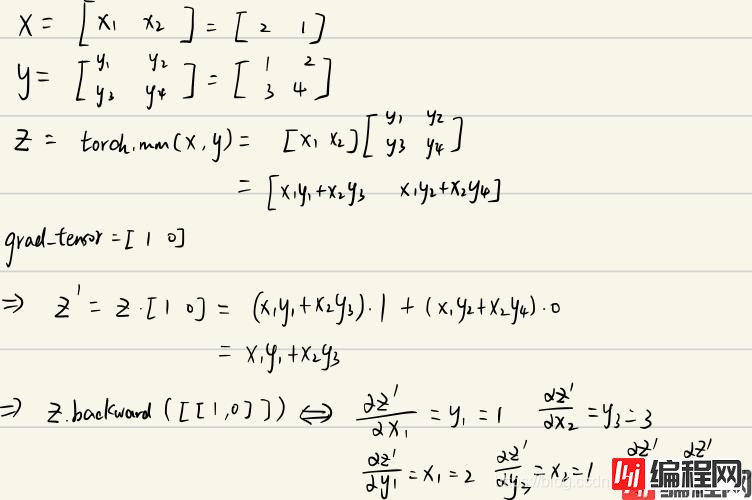 x = [ x₁ x₂ ] = [ 2 1 ]
y = [ y₁ y₂ ] = [ 1 2 ]
y₃ y₄ 3 4
z = torch.mm(x,y) = [x₁ x₂] [ y₁ y₂ ]
y₃ y₄
= [x₁y₁+x₂y₃ x₁y₂+x₂y₄]
grad_tensor = [ 1 0]
⇒ z' = z·[1 0] = (x₁y₁+x₂y₃)·1 + (x₁y₂+x₂y₄)·0
= x₁y₁+x₂y₃
⇒ z.backward([[1,0]]) ⇔ ∂z'/∂x₁ = y₁ = 1 ∂z'/∂x₂ = y₃ = 3
∂z'/∂y₁ = x₁ = 2 ∂z'/∂y₃ = x₂ = 1 ∂z' ∂z'
编程网